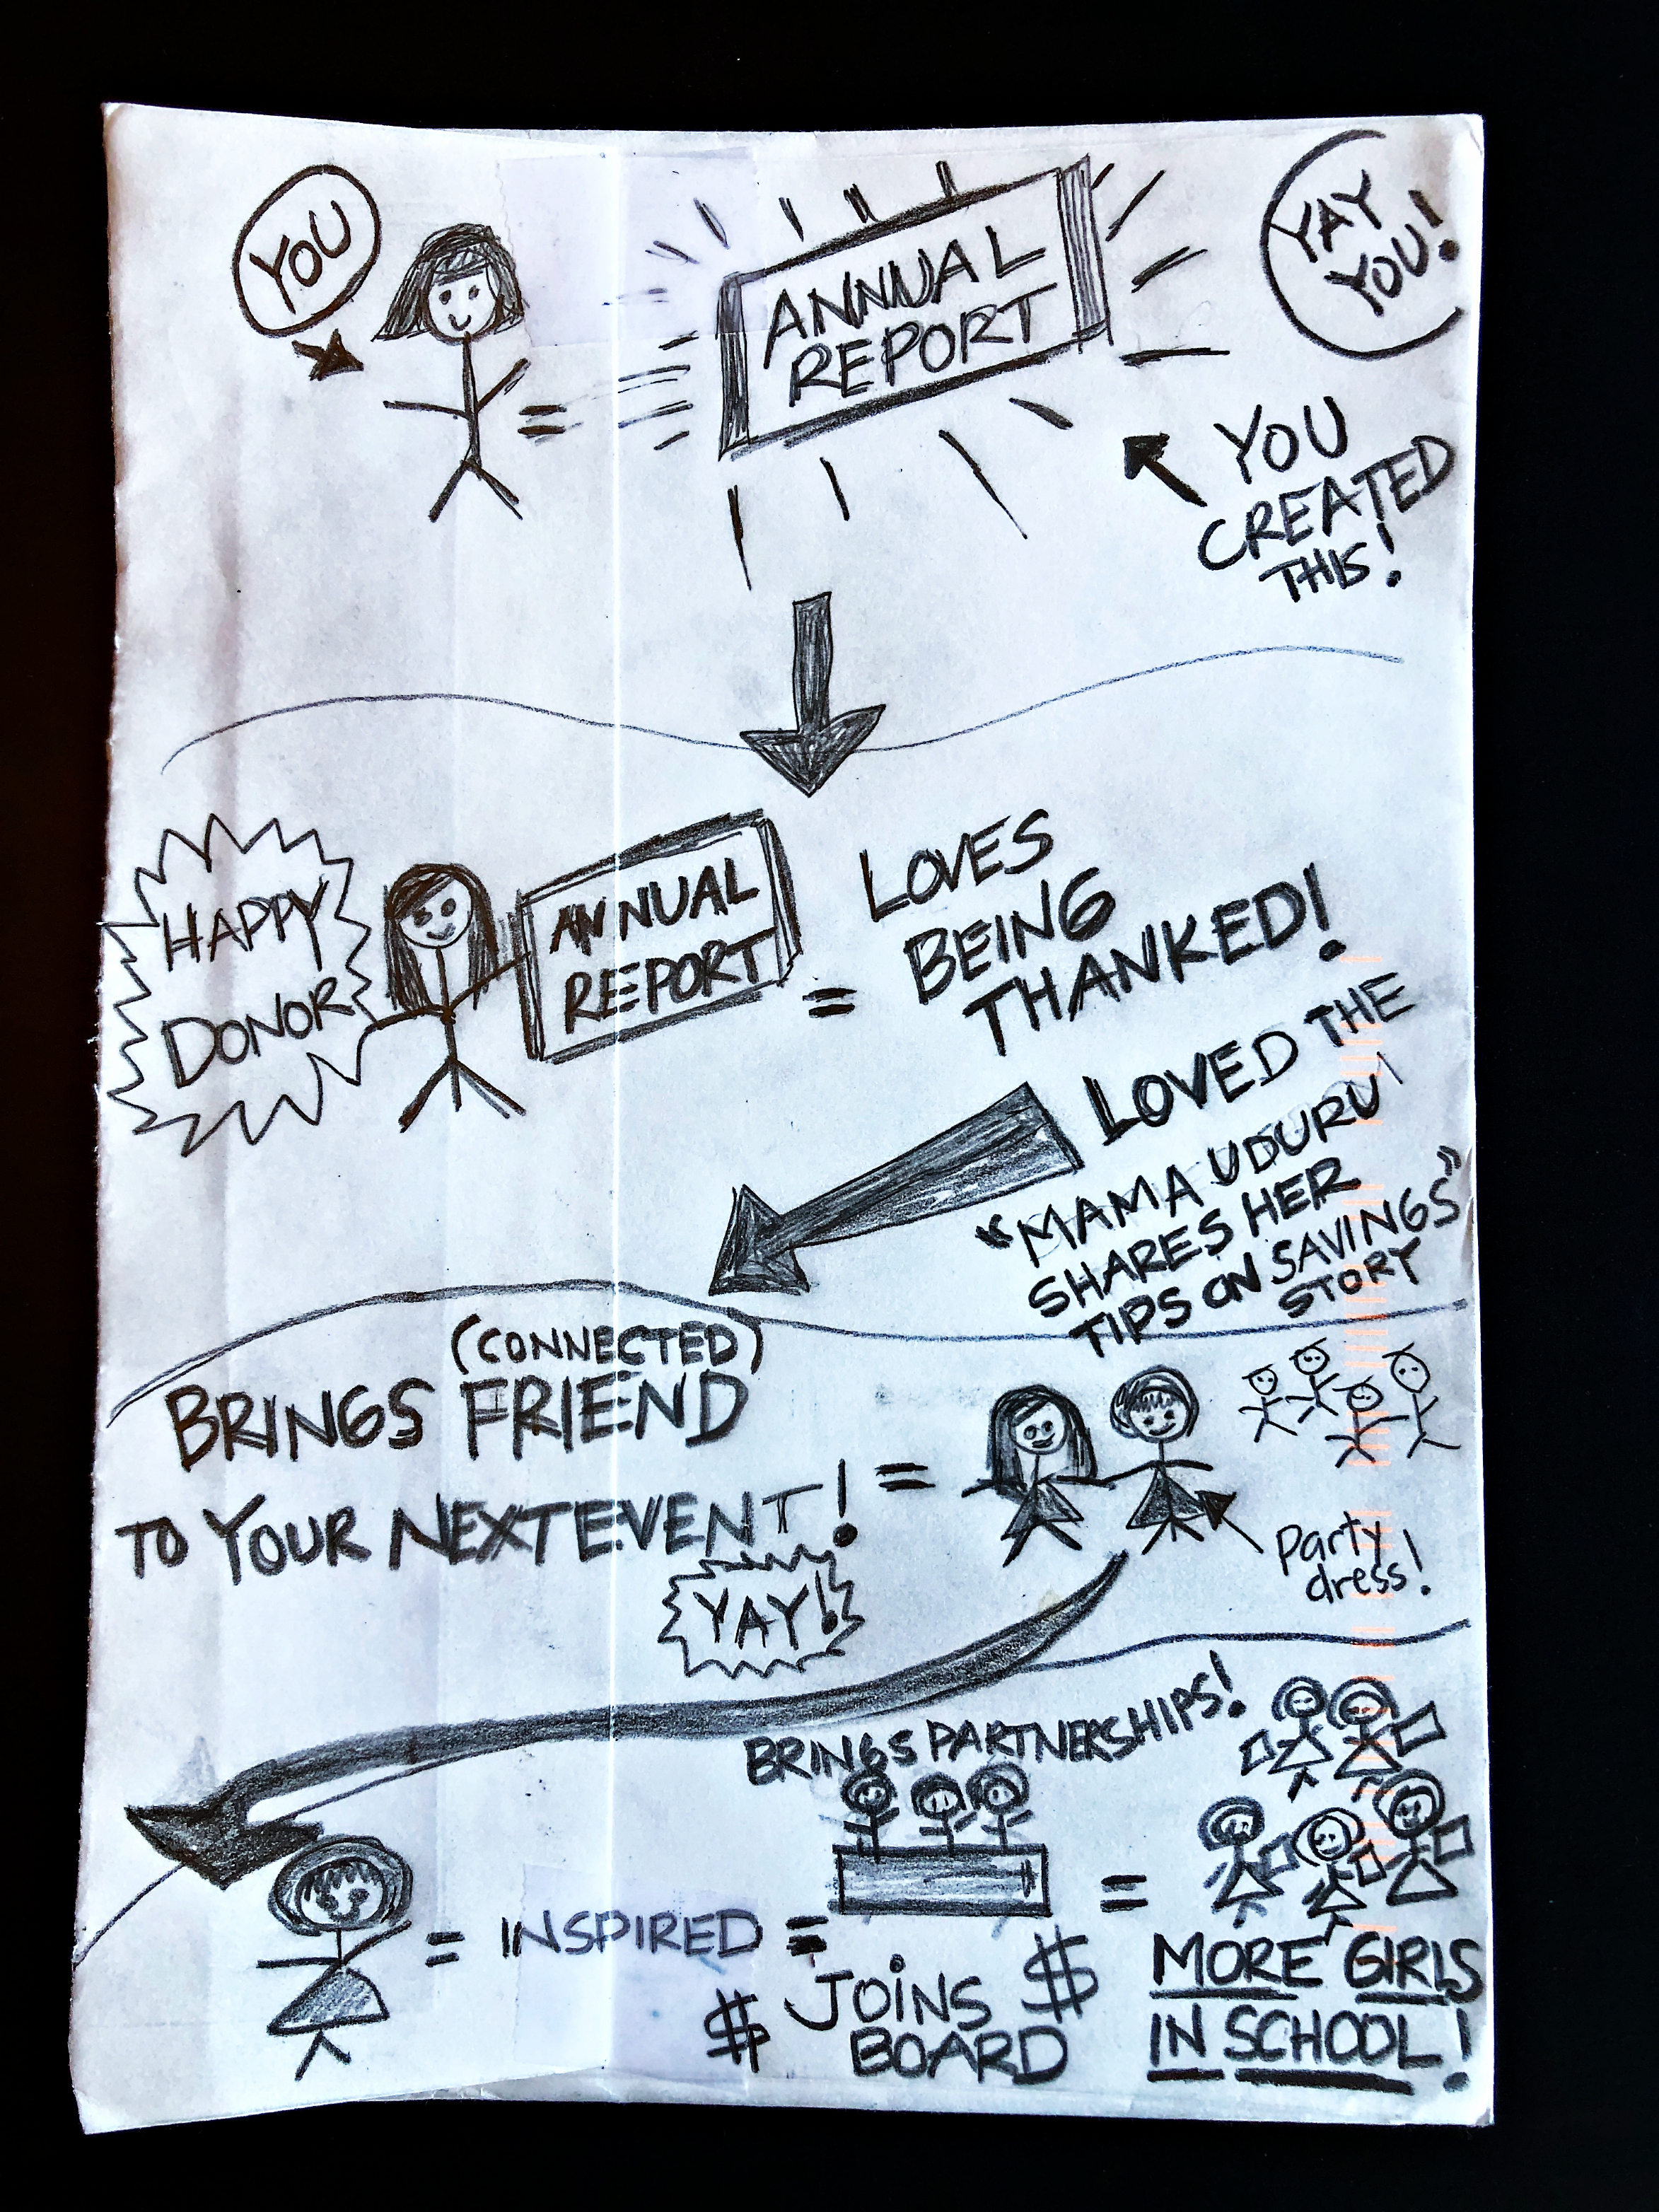 YOU
=
ANNUAL
REPORT
YAY
YOU!
YOU
CREATED
THIS!
HAPPY
DONOR
ANNUAL
REPORT
=
LOVES
BEING
THANKED!
LOVED THE
"MAMA UDURU
SHARES HER
TIPS ON SAVINGS"
STORY
(CONNECTED)
BRINGS FRIEND
TO YOUR NEXT EVENT!
=
YAY!
party
dress!
BRINGS PARTNERSHIPS!
= INSPIRED =
$ JOINS $
BOARD
=
MORE GIRLS
IN SCHOOL!